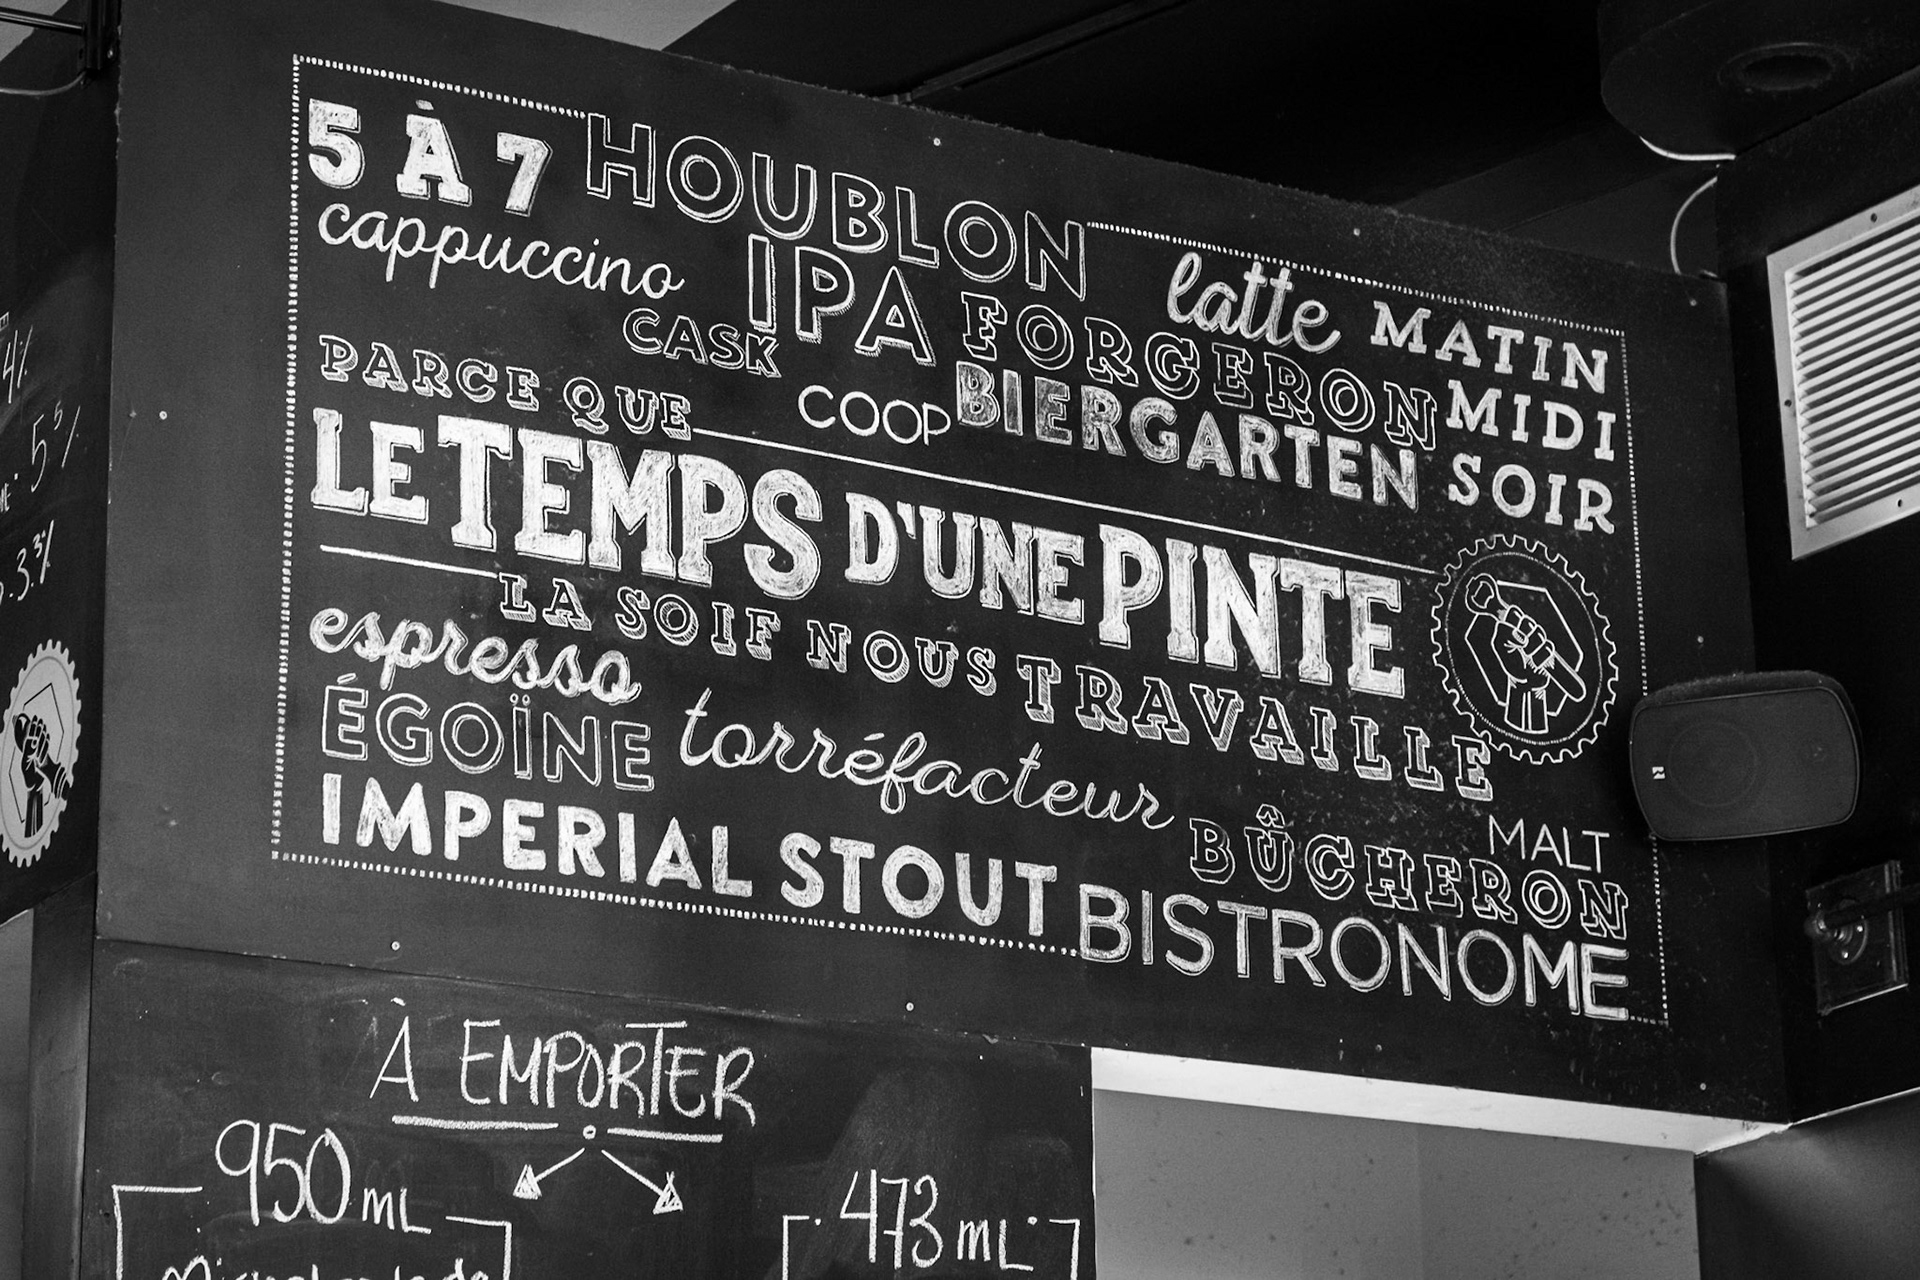 5 À 7 HOUBLON
cappuccino
IPA
latte
MATIN
CASK
FORGERON
PARCE QUE
COOP
BIERGARTEN
MIDI
SOIR
LE TEMPS D'UNE PINTE
LA SOIF NOUS TRAVAILLE
espresso
ÉGOÏNE
torréfacteur
MALT
BÛCHERON
IMPERIAL STOUT
BISTRONOME
À EMPORTER
950 mL
473 mL